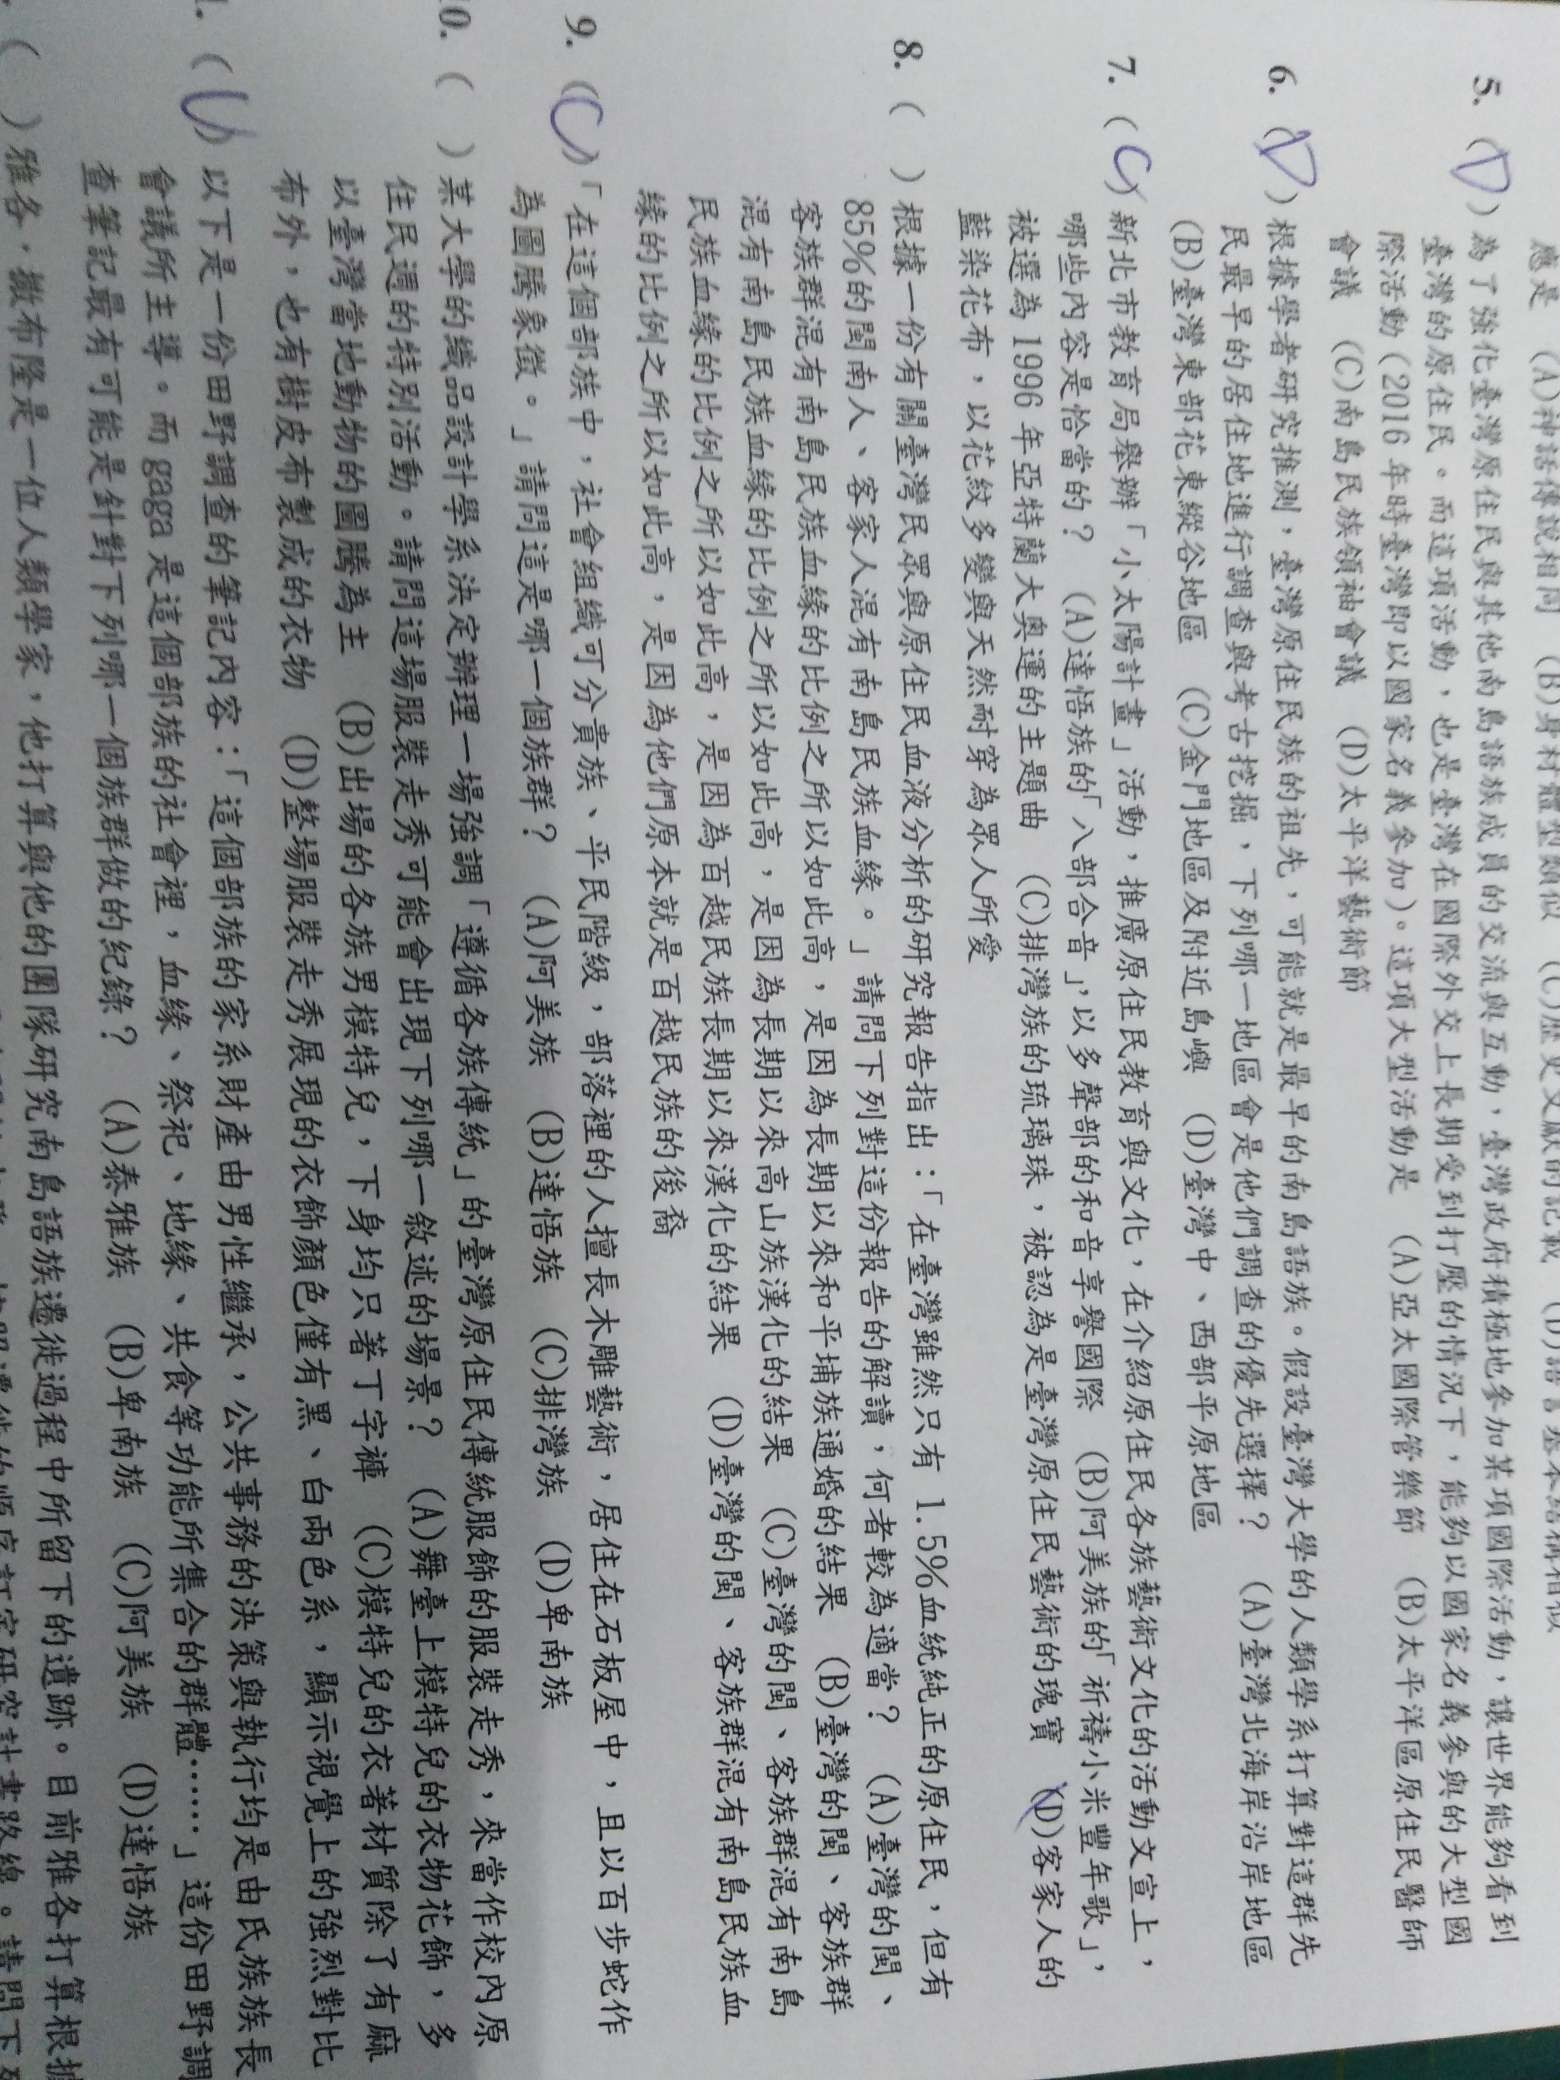 應是 (A)神話傳說相同 (B)身材體型類似 (C)歷史文獻的記載 (D)語言基本結構相似
5. (D)為了強化臺灣原住民與其他南島語族成員的交流與互動，臺灣政府積極地參加某項國際活動，讓世界能夠看到
臺灣的原住民。而這項活動，也是臺灣在國際外交上長期受到打壓的情況下，能夠以國家名義參與的大型國
際活動(2016年時臺灣即以國家名義參加)。這項大型活動是 (A)亞太國際管樂節 (B)太平洋區原住民醫師
會議 (C)南島民族領袖會議 (D)太平洋藝術節
6. (D)根據學者研究推測，臺灣原住民族的祖先，可能就是最早的南島語族。假設臺灣大學的人類學系打算對這群先
民最早的居住地進行調查與考古挖掘，下列哪一地區會是他們調查的優先選擇？ (A)臺灣北海岸沿岸地區
(B)臺灣東部花東縱谷地區 (C)金門地區及附近島嶼 (D)臺灣中、西部平原地區
7. (C)新北市教育局舉辦「小太陽計畫」活動，推廣原住民教育與文化，在介紹原住民各族藝術文化的活動文宣上，
哪些內容是恰當的？ (A)達悟族的「八部合音」，以多聲部的和音享譽國際 (B)阿美族的「祈禱小米豐年歌」，
被選為1996年亞特蘭大奧運的主題曲 (C)排灣族的琉璃珠，被認為是臺灣原住民藝術的瑰寶 (D)客家人的
藍染花布，以花紋多變與天然耐穿為眾人所愛
8. ( )根據一份有關臺灣民眾與原住民血液分析的研究報告指出：「在臺灣雖然只有1.5%血統純正的原住民，但有
85%的閩南人、客家人混有南島民族血緣。」請問下列對這份報告的解讀，何者較為適當？ (A)臺灣的閩、
客族群混有南島民族血緣的比例之所以如此高，是因為長期以來和平埔族通婚的結果 (B)臺灣的閩、客族群
混有南島民族血緣的比例之所以如此高，是因為長期以來高山族漢化的結果 (C)臺灣的閩、客族群混有南島
民族血緣的比例之所以如此高，是因為百越民族長期以來漢化的結果 (D)臺灣的閩、客族群混有南島民族血
緣的比例之所以如此高，是因為他們原本就是百越民族的後裔
9. (C)「在這個部族中，社會組織可分貴族、平民階級，部落裡的人擅長木雕藝術，居住在石板屋中，且以百步蛇作
為圖騰象徵。」請問這是哪一個族群？ (A)阿美族 (B)達悟族 (C)排灣族 (D)卑南族
0. ( )某大學的織品設計學系決定辦理一場強調「遵循各族傳統」的臺灣原住民傳統服飾的服裝走秀，來當作校內原
住民週的特別活動。請問這場服裝走秀可能會出現下列哪一敘述的場景？ (A)舞臺上模特兒的衣物花飾，多
以臺灣當地動物的圖騰為主 (B)出場的各族男模特兒，下身均只著丁字褲 (C)模特兒的衣著材質除了有麻
布外，也有樹皮布製成的衣物 (D)整場服裝走秀展現的衣飾顏色僅有黑、白兩色系，顯示視覺上的強烈對比
. ( )以下是一份田野調查的筆記內容：「這個部族的家系財產由男性繼承，公共事務的決策與執行均是由氏族族長
會議所主導。而gaga是這個部族的社會裡，血緣、祭祀、地緣、共食等功能所集合的群體……」這份田野調
查筆記最有可能是針對下列哪一個族群做的紀錄？ (A)泰雅族 (B)卑南族 (C)阿美族 (D)達悟族
( )雅各．撒布隆是一位人類學家，他打算與他的團隊研究南島語族遷徙過程中所留下的遺跡。目前雅各打算根據